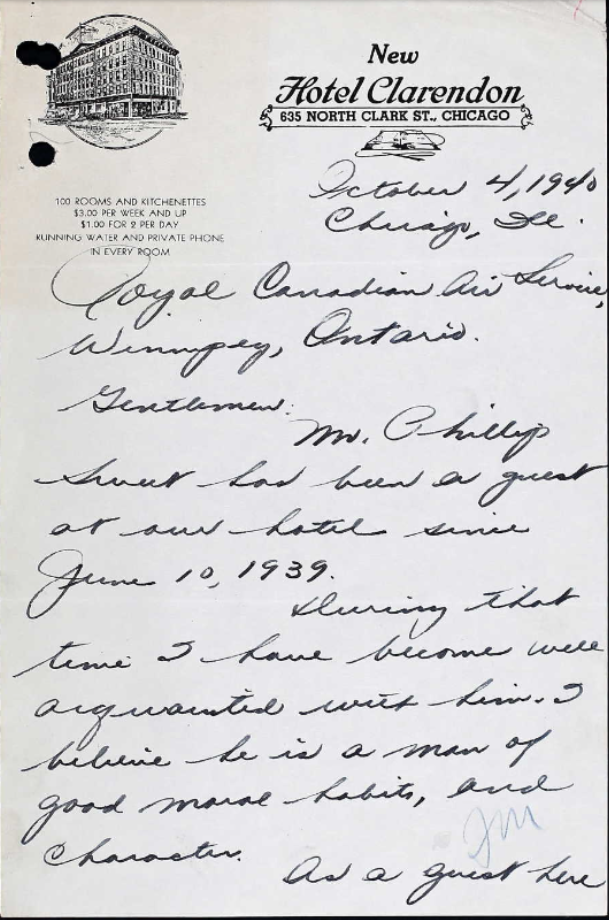 New
Hotel Clarendon
635 NORTH CLARK ST., CHICAGO
100 ROOMS AND KITCHENETTES
$3.00 PER WEEK AND UP
$1.00 FOR 2 PER DAY
RUNNING WATER AND PRIVATE PHONE
IN EVERY ROOM
October 4, 1940
Chicago, Ill.
Royal Canadian Air Service,
Winnipeg, Ontario.
Gentlemen:
Mr. Phillip
Sweet has been a guest
at our hotel since
June 10, 1939.
During that
time I have become well
acquainted with him. I
believe he is a man of
good moral habits, and
character.
As a guest here